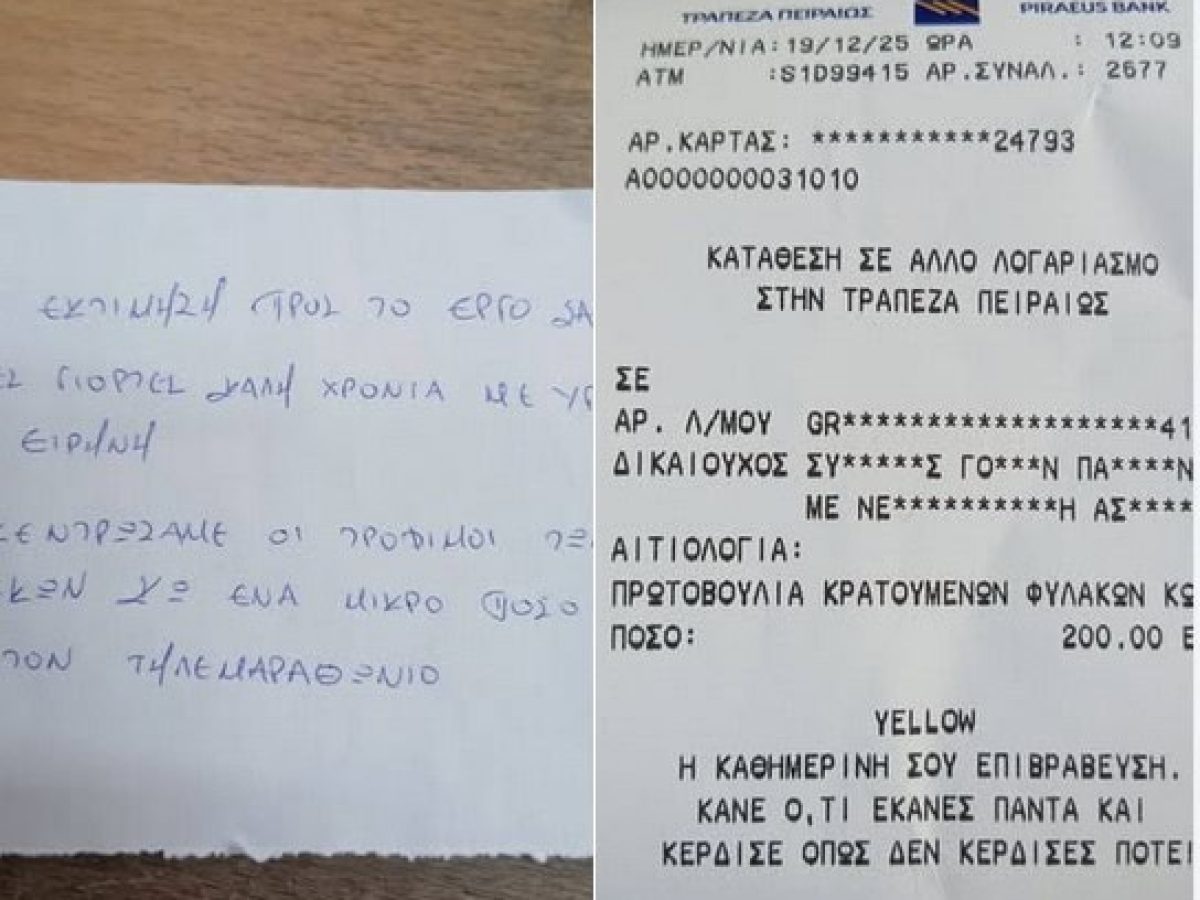 ΕΚΤΙΜΗΣΗ ΠΡΟΣ ΤΟ ΕΡΓΟ ΣΑ
ΕΣ ΓΙΟΡΤΕΣ ΚΑΛΗ ΧΡΟΝΙΑ ΜΕ ΥΓ
ΕΙΡΗΝΗ
ΚΕΝΤΡΩΣΑΜΕ ΟΙ ΤΡΟΦΙΜΟΙ ΤΩ
ΚΩΝ ΚΩ ΕΝΑ ΜΙΚΡΟ ΠΟΣΟ
ΤΟΝ ΤΗΛΕΜΑΡΑΘΩΝΙΟ
ΤΡΑΠΕΖΑ ΠΕΙΡΑΙΩΣ PIRAEUS BANK
ΗΜΕΡ/ΝΙΑ:19/12/25 ΩΡΑ : 12:09
ΑΤΜ :S1D99415 ΑΡ.ΣΥΝΑΛ.: 2677
ΑΡ.ΚΑΡΤΑΣ: ***********24793
A0000000031010
ΚΑΤΑΘΕΣΗ ΣΕ ΑΛΛΟ ΛΟΓΑΡΙΑΣΜΟ
ΣΤΗΝ ΤΡΑΠΕΖΑ ΠΕΙΡΑΙΩΣ
ΣΕ
ΑΡ. Λ/ΜΟΥ GR********************41
ΔΙΚΑΙΟΥΧΟΣ ΣΥ*****Σ ΓΟ***Ν ΠΑ****Ν
ΜΕ ΝΕ**********Η ΑΣ****
ΑΙΤΙΟΛΟΓΙΑ:
ΠΡΩΤΟΒΟΥΛΙΑ ΚΡΑΤΟΥΜΕΝΩΝ ΦΥΛΑΚΩΝ ΚΩ
ΠΟΣΟ: 200.00 Ε
YELLOW
Η ΚΑΘΗΜΕΡΙΝΗ ΣΟΥ ΕΠΙΒΡΑΒΕΥΣΗ.
ΚΑΝΕ Ο,ΤΙ ΕΚΑΝΕΣ ΠΑΝΤΑ ΚΑΙ
ΚΕΡΔΙΣΕ ΟΠΩΣ ΔΕΝ ΚΕΡΔΙΣΕΣ ΠΟΤΕ!